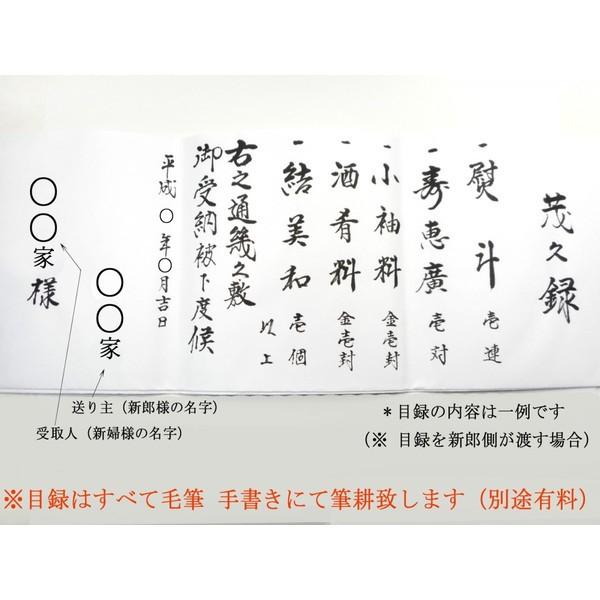 茂久録
一熨斗 壱連
一寿恵廣 壱対
一小袖料 金壱封
一酒肴料 金壱封
一結美和 壱個
以上
右之通幾久敷
御受納被下度候
平成〇年〇月吉日
〇〇家
〇〇家様
送り主（新郎様の名字）
受取人（新婦様の名字）
＊目録の内容は一例です
（※ 目録を新郎側が渡す場合）
※目録はすべて毛筆 手書きにて筆耕致します（別途有料）